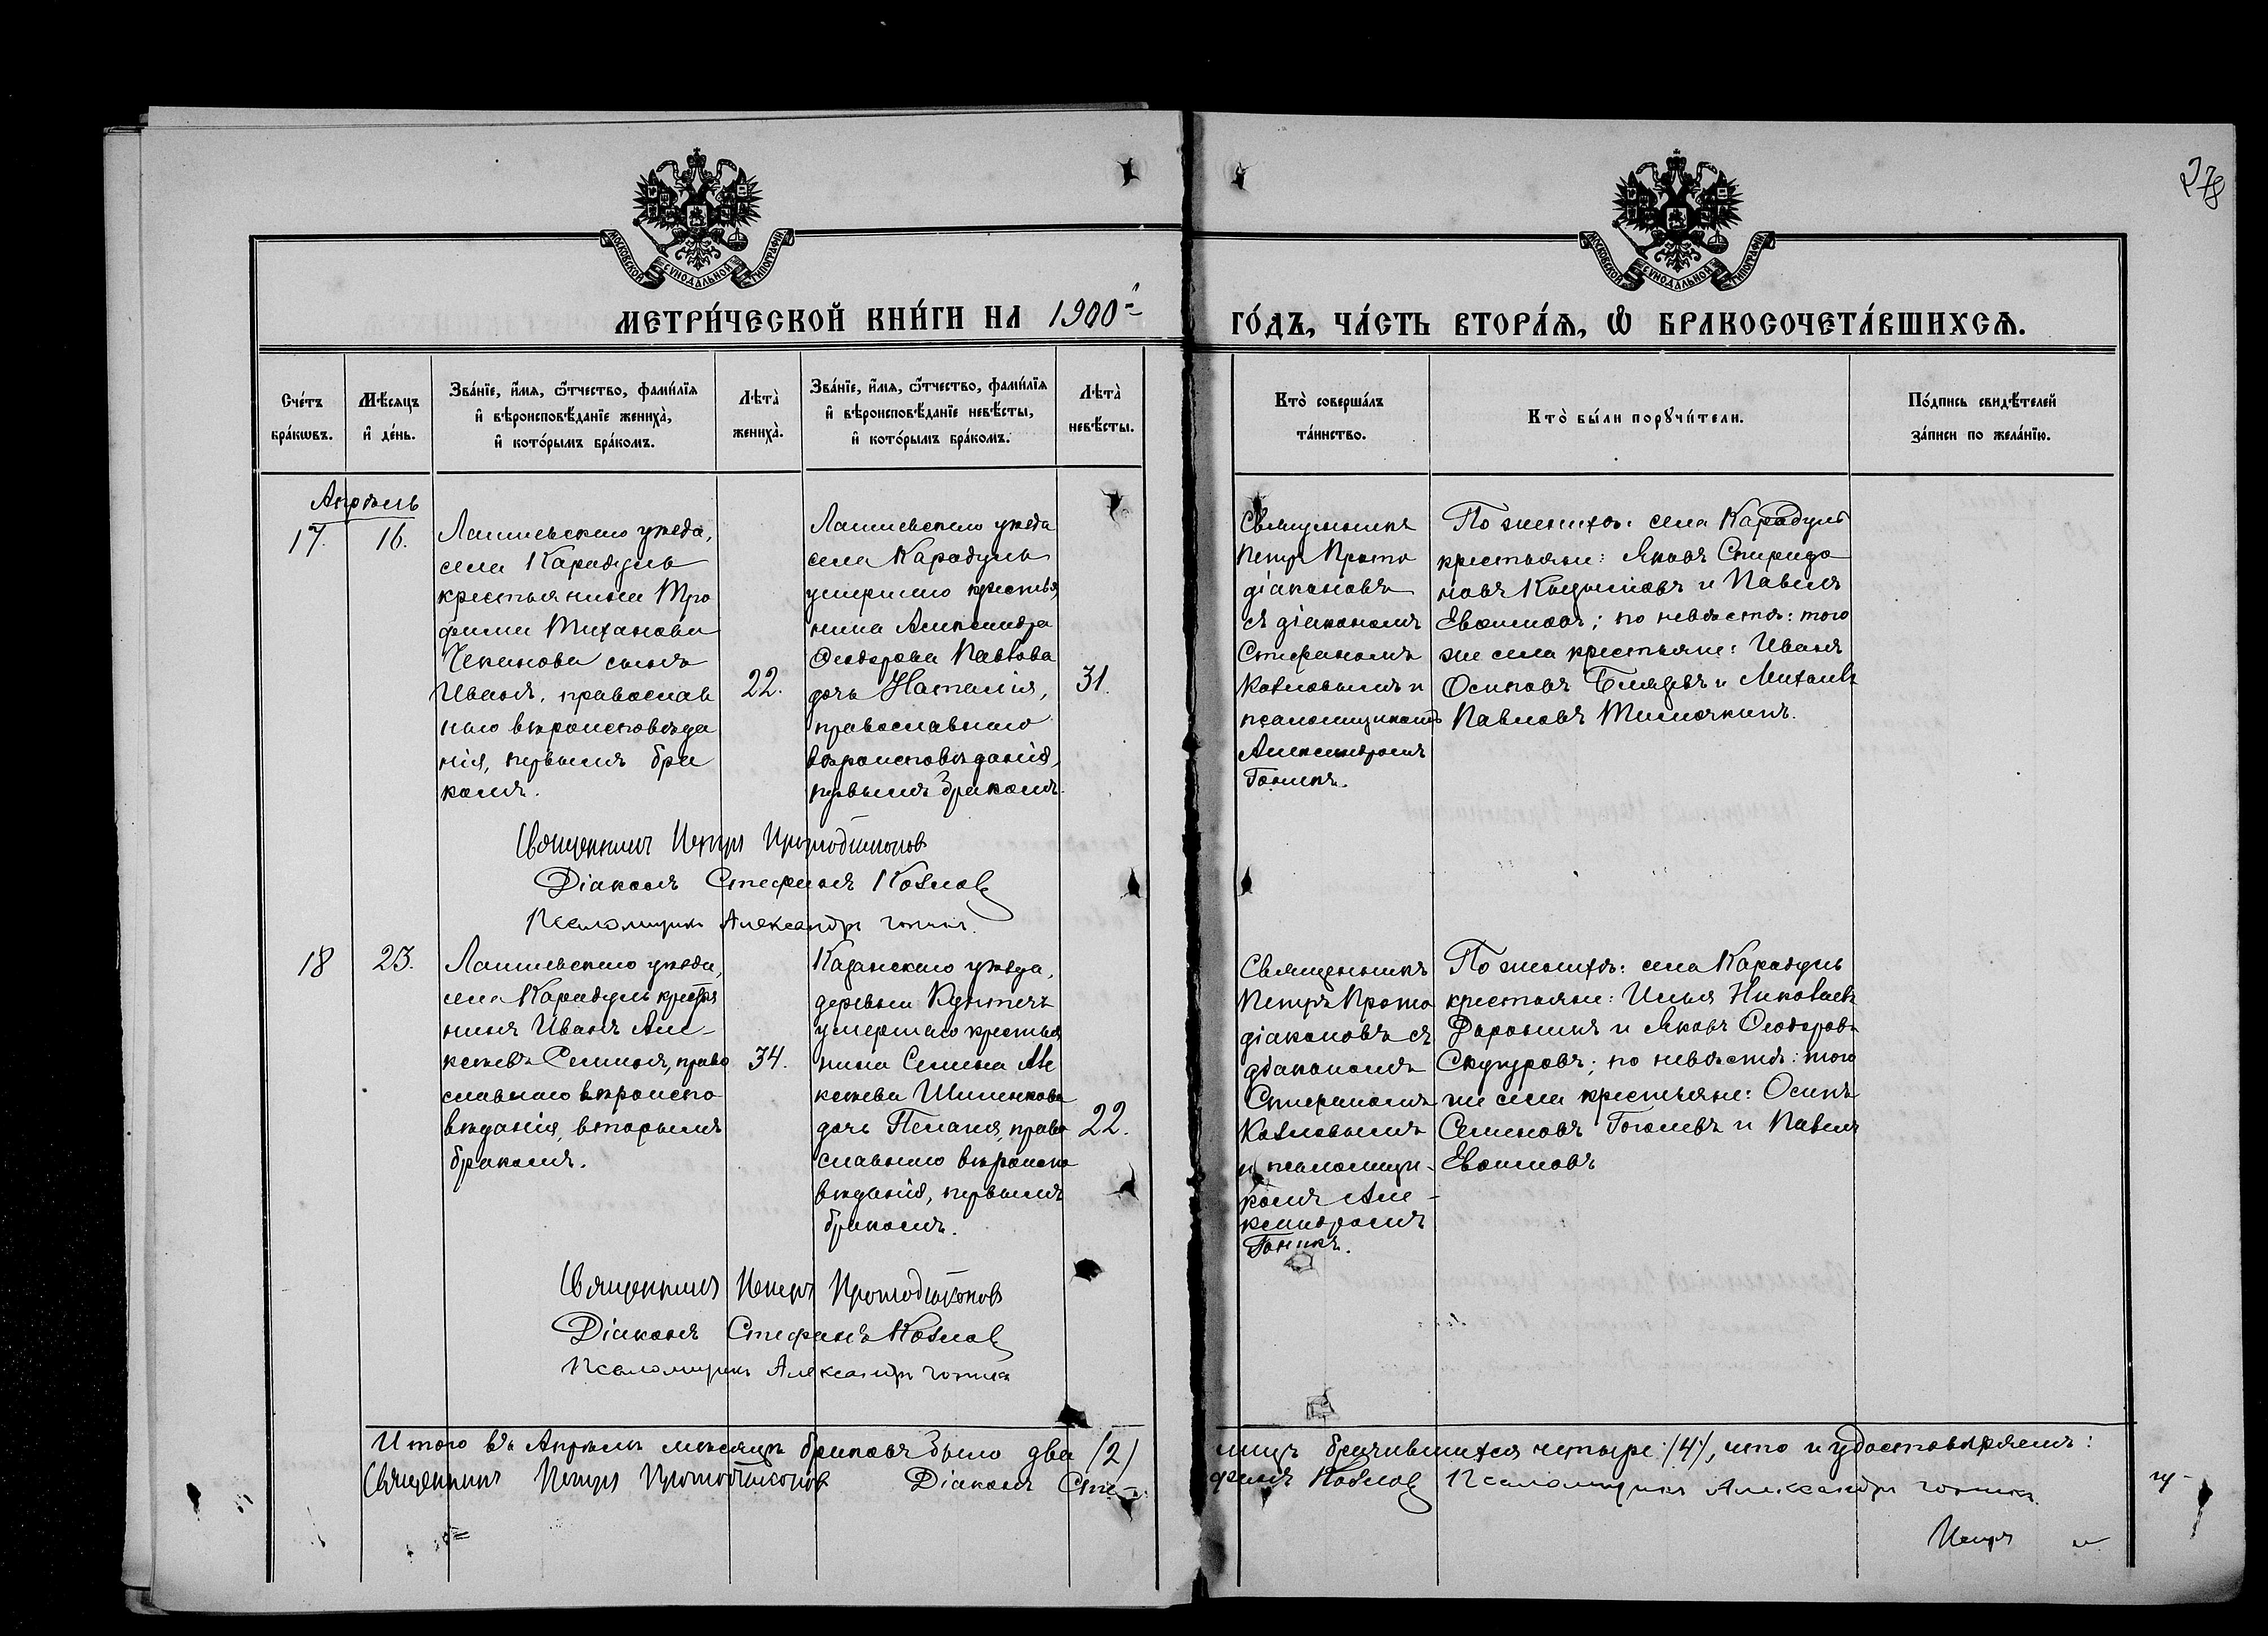 278
МОСКОВСКОЙ СѴНОДАЛЬНОЙ ТИПОГРАФІИ
МОСКОВСКОЙ СѴНОДАЛЬНОЙ ТИПОГРАФІИ
МЕТРИ́ЧЕСКОЙ КНИ́ГИ НА 1900й
ГО́ДЪ, ЧА́СТЬ ВТОРА́Ѧ, Ѽ БРАКОСОЧЕТА́ВШИХСѦ.
Сче́тъ
бра́кѡвъ.
Мѣ́сяцъ
и҆ де́нь.
Зва́нїе, и҆́мя, ѻ҆́тчество, фами́лїя
и҆ вѣроисповѣ́данїе жениха̀,
и҆ кото́рымъ бра́комъ.
Лѣта̀
жениха̀.
Зва́нїе, и҆́мя, ѻ҆́тчество, фами́лїя
и҆ вѣроисповѣ́данїе невѣ́сты,
и҆ кото́рымъ бра́комъ.
Лѣта̀
невѣ́сты.
Кто̀ соверша́лъ
та́инство.
Кто̀ бы́ли порꙋчи́тели.
По́дпись свидѣ́телей
за́писи по жела́нїю.
Апрѣль
17.
16.
Лаишевскаго уѣзда,
села Карадуль
крестьянина Тро
фима
Чеканова сынъ
Иванъ, православ
наго вѣроисповѣда
нія, первымъ бра
комъ.
22.
Лаишевскаго уѣзда
села Карадуль
умершаго крестья
нина Александра
Ѳеодорова Павлова
дочь Наталія,
православнаго
вѣроисповѣданія,
первымъ бракомъ.
31.
Священникъ
Петръ Прото
діаконовъ
съ діакономъ
Стефаномъ
Козловымъ и
псаломщикомъ
Александромъ
По женихѣ: села Карадуль
крестьяне: Яковъ Спиридо
новъ и Павелъ
Евоимовъ; по невѣстѣ: того
же села крестьяне: Иванъ
Осиповъ Бѣляевъ и Михаилъ
Павловъ
Священникъ Петръ Протодіаконовъ
Діаконъ Стефанъ Козловъ
Псаломщикъ Александръ
18
23.
Лаишевскаго уѣзда,
села Карадуль крестья
нинъ Иванъ Але
ксѣевъ Семинъ, право
славнаго вѣроиспо
вѣданія, вторымъ
бракомъ.
34.
Казанскаго уѣзда,
деревни
умершаго крестья
нина Семена Але
ксѣева
дочь Пелагія, право
славнаго вѣроиспо
вѣданія, первымъ
бракомъ.
22.
Священникъ
Петръ Прото
діаконовъ съ
діакономъ
Стефаномъ
Козловымъ
и псаломщи-
комъ Але-
ксандромъ
По женихѣ: села Карадуль
крестьяне: Илья Николаевъ
Доронинъ и Яковъ Ѳеодоровъ
по невѣстѣ: того
же села крестьяне: Осипъ
Семеновъ Гоголевъ и Павелъ
Евоимовъ
Священникъ Петръ Протодіаконовъ
Діаконъ Стефанъ Козловъ
Псаломщикъ Александръ
Итого въ Апрѣлѣ мѣсяцѣ браковъ было два (2)
лицъ брачившихся четыре (4), что и удостовѣряемъ:
Священникъ Петръ Протодіаконовъ Діаконъ Сте-
фанъ Козловъ Псаломщикъ Александръ